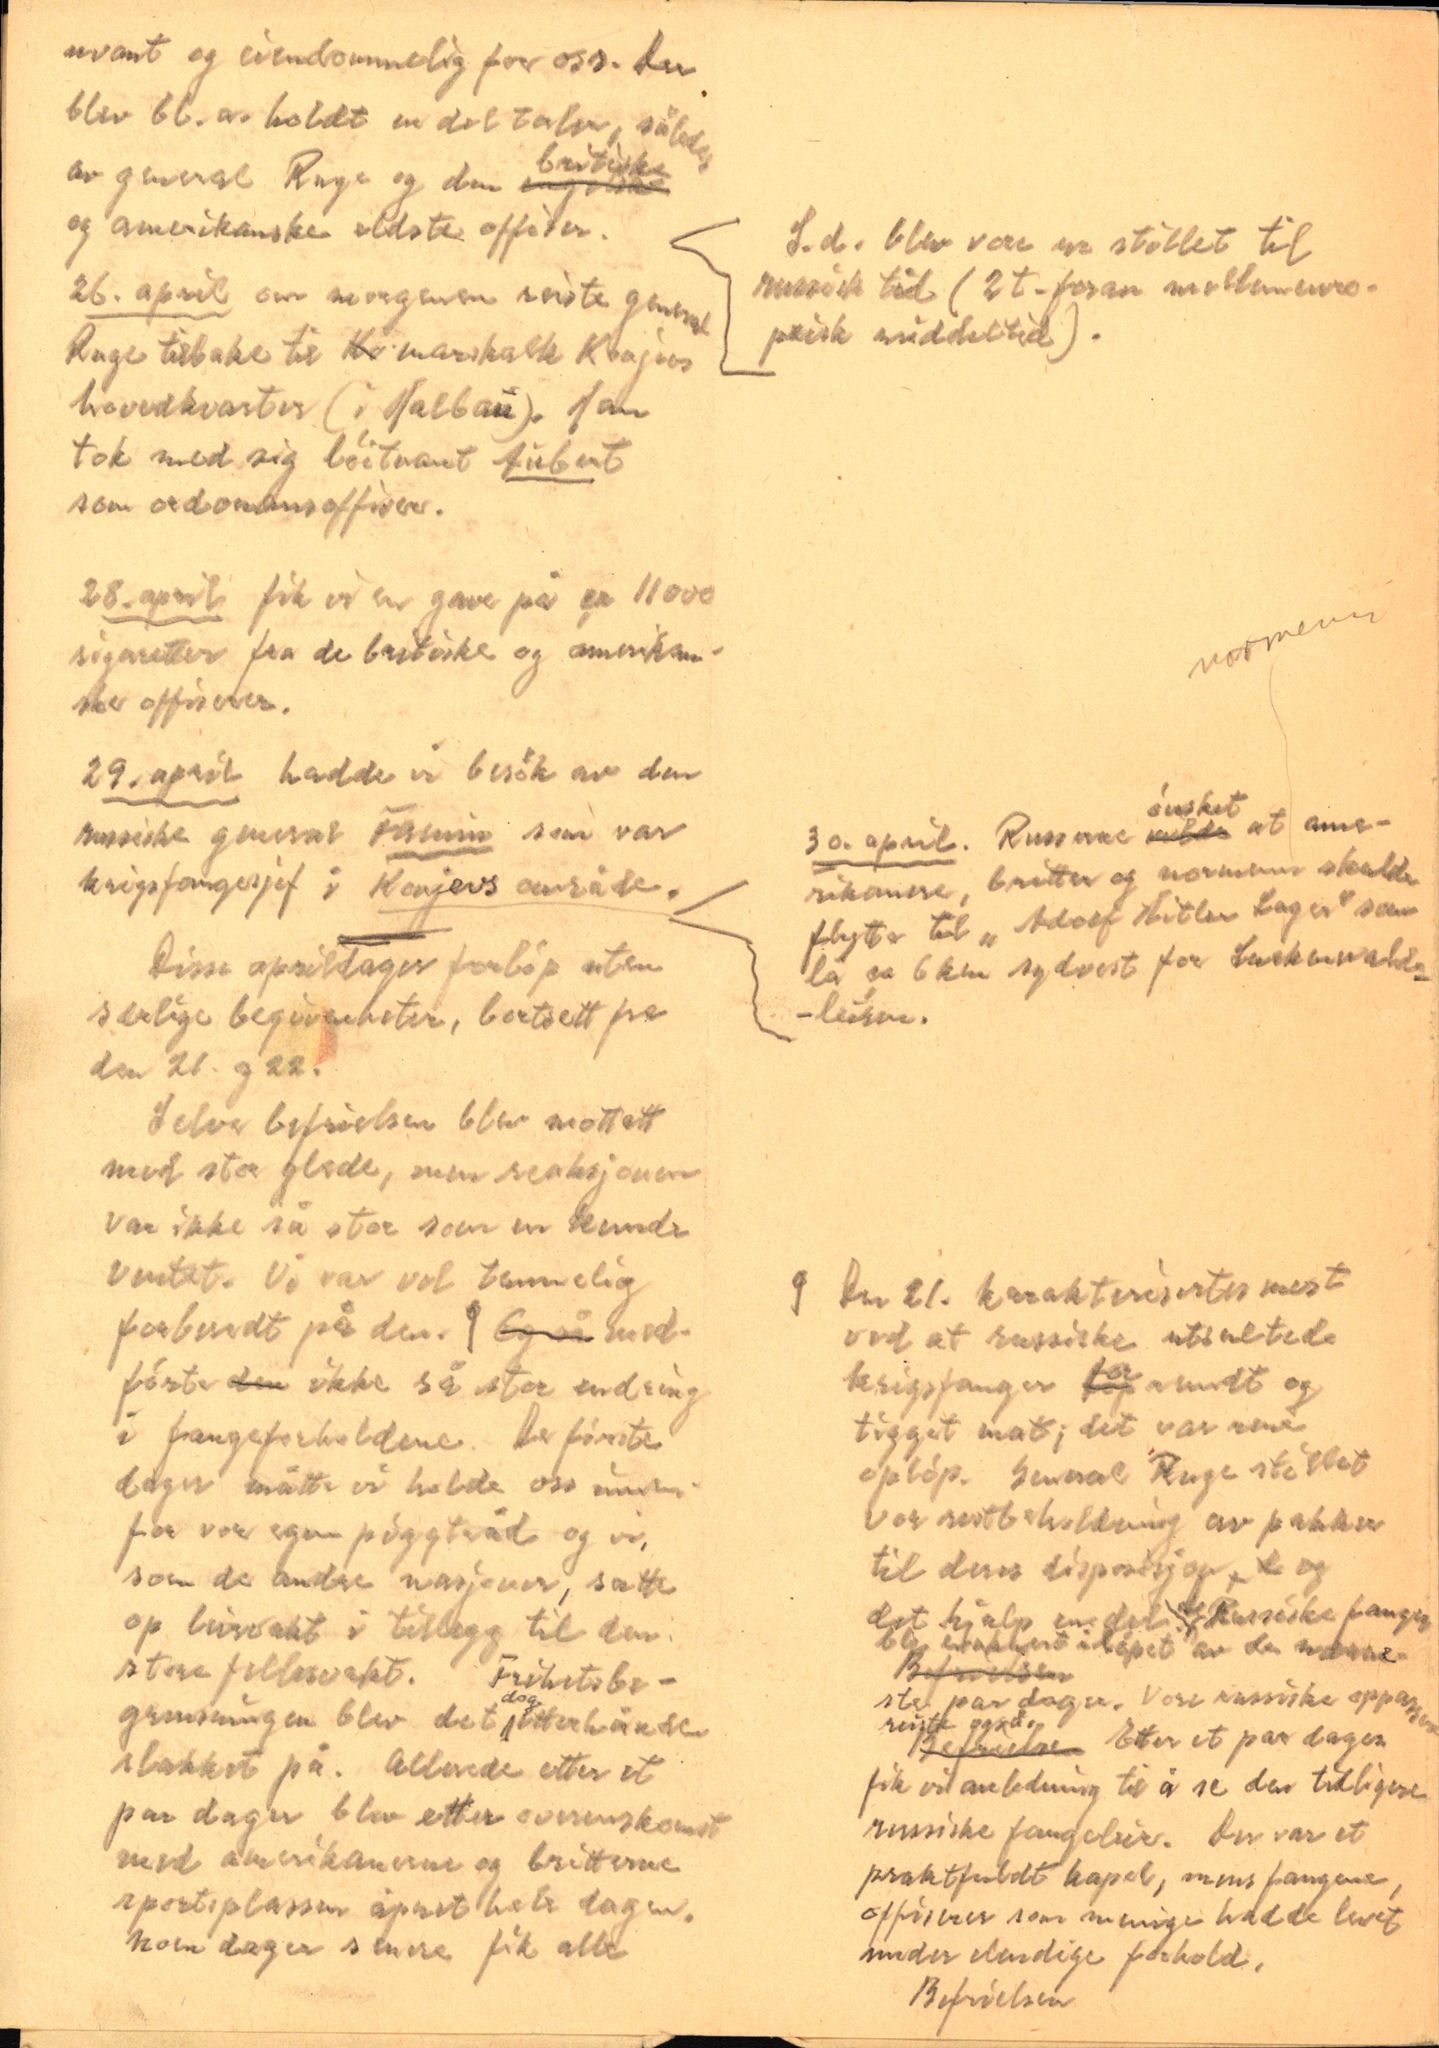 uvant og eiendommelig for oss. Der
blev bl. a. holdt en del taler, således
av general Ruge og den engelske britiske
og amerikanske eldste offiser.
26. april om morgenen reiste general
Ruge tilbake til Ko marskalk Konjevs
hovedkvarter (i Halbau). Han
tok med sig löitnant Aubert
som ordonansoffiser.
28. april fik vi en gave på ca 11000
sigaretter fra de britiske og amerikan-
ske offiserer.
29. april hadde vi besök av den
russiske general Famin som var
krigsfangesjef i Konjevs område.
Disse aprildager forlöp uten
særlige begivenheter, bortsett fra
den 21. og 22.
Selve befrielsen blev mottatt
med stor glede, men reaksjonen
var ikke så stor som en kunde
ventet. Vi var vel temmelig
forberedt på den. Og så med-
förte den ikke så stor endring
i fangeforholdene. De förste
dager måtte vi holde oss innen-
for vor egen piggtråd og vi,
som de andre nasjoner, satte
op leirvakt i tillegg til den
store fellesvakt. Frihetsbe-
grensningen blev det dog etterhånden
slakket på. Allerede etter et
par dager blev etter overenskomst
med amerikanerne og britterne
sportsplassen åpnet hele dagen.
Noen dager senere fik alle
S. d. blev vore ur stillet til
russisk tid (2 t. foran mellemeuro-
peisk middeltid).
normenn
30. april. Russerne vilde önsket at ame-
rikanere, britter og normenn skulde
flytte til "Adolf Hitler Lager" som
lå ca 6 km sydvest for Luckenwalde-
-leiren.
Den 21. karakterisertes mest
ved at russiske utsultede
krigsfanger for rundt og
tigget mat; det var rene
oplöp. General Ruge stillet
vor restbeholdning av pakker
til deres disposisjon, og
det hjalp en del. Russiske fanger
ble evakuert i löpet av de næsste
Befrielsen
par dager. Vore russiske oppassere
reiste også.
Befrielsen Etter et par dager
fik vi anledning til å se den tidligere
russiske fangeleir. Der var et
praktfuldt kapel, mens fangene,
offiserer som menige hadde levet
under elendige forhold.
Befrielsen